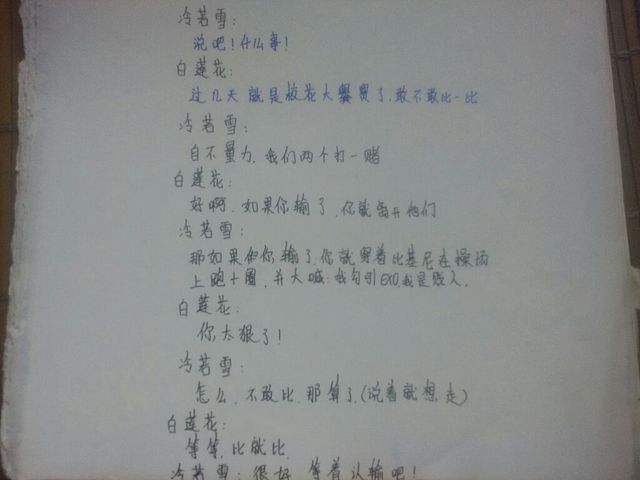 冷若雪:
说吧!什么事!
白莲花:
过几天就是校花大赛了,敢不敢比一比
冷若雪:
自不量力,我们两个打一赌
白莲花:
好啊.如果你输了,你就离开他们
冷若雪:
那如果你输了,你就穿着比基尼在操场
上跑十圈,并大喊:我勾引EXO,我是贱人.
白莲花:
你太狠了!
冷若雪:
怎么,不敢比,那算了,(说着就想走)
白莲花:
等等,比就比,
冷若雪:很好,等着认输吧!